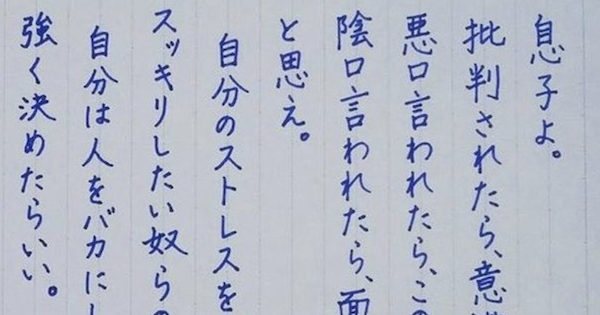 息子よ。
批判されたら、意
悪口言われたら、この
陰口言われたら、面
と思え。
自分のストレスを
スッキリしたい奴らの
自分は人をバカにし
強く決めたらいい。